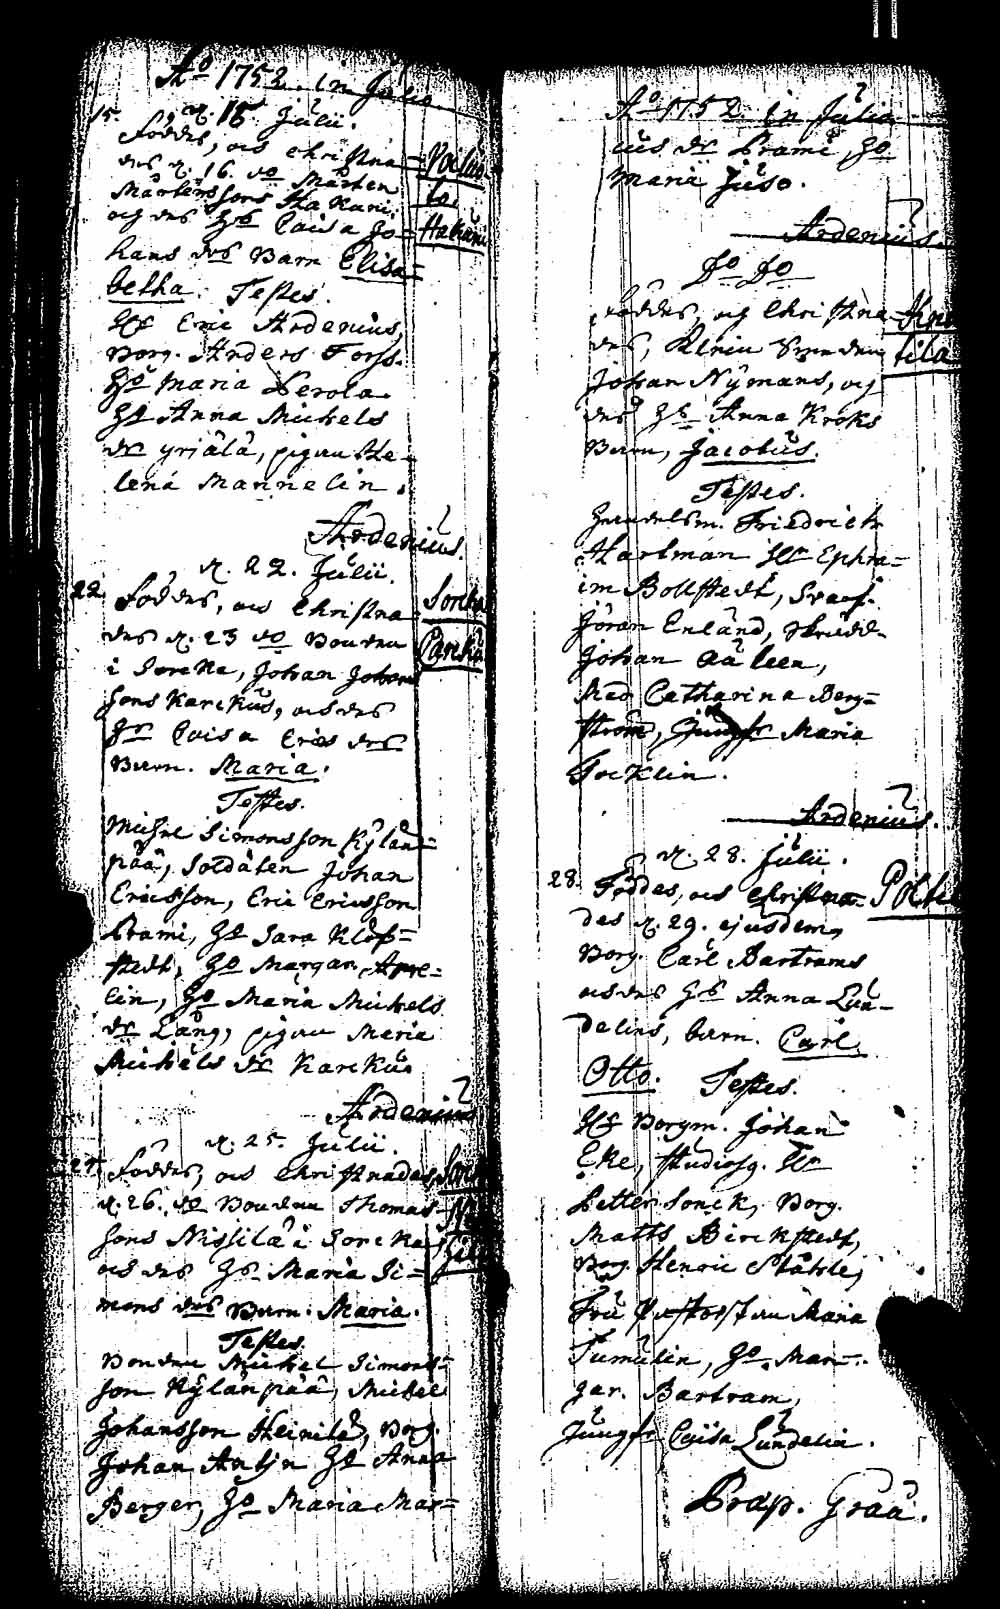 Ao 1752. in Julio
15. d. 15. Julii.
Föddes, och Christna=
des d. 16. do Mårten
Mårtenssons Hakuni,
och des Ho Caisa Jo=
hans drs Barn Elisa=
betha. Testes.
Hakuni
Hr Eric Ardenius,
Borg. Anders Forss.
Ho Maria Perola
Ho Anna Michels
dr Yrjälä, pigan He=
lena Mannelin.
Ardenius.
d. 22. Julii.
22. Föddes, och Christna=
des d. 23 do Bonden
i Sorcka, Johan Johans
sons Karckus, och des
Ho Caisa Erics drs
Barn. Maria.
Testes.
Michel Simonsson Kylän=
pää, Soldaten Johan
Ericsson, Eric Ericsson
Prami, Ho Sara Klöf=
stedt, Ho Margar. Apre=
lin, Ho Maria Michels
dr Lång, pigan Maria
Michels dr Karckus
Ardenius
d. 25. Julii.
Föddes, och Christnades
d. 26. do Bonden Thomas
sons Nissilä i Sorcka,
och des Ho Maria Si=
mons drs Barn. Maria.
Testes
Bonden Michel Simons=
son Kylänpää, Michel
Johansson Heinilä, Borg.
Johan Antin Ho Anna
Berger, Ho Maria Mar=
Ao 1752. in Julio
cus dr Prami, Ho
Maria Juso.
Ardenius.
Do Do
Föddes, och Christna=
des, Johan Nymans, och
des Ho Anna Kroks
Barn, Jacobus.
Testes.
Handelsm. Friedrich
Hartman Hr Ephra=
im Bollstedt, Svarf.
Jöran Enland, Skrädd.
Johan Aaleen,
Mad Catharina Berg=
ström, Jungfr Maria
Tocklin.
Ardenius.
d. 28. Julii.
28. Föddes, och Christna=
des d. 29. ejusdem,
Borg. Carl Bartrams
och des Ho Anna Lun=
delins, barn. Carl
Otto. Testes.
Hr Borgm. Johan
Eke, Studiosg. Hr
Petter Sonck, Borg.
Matts Birckstedt,
Borg. Henric Ståhle,
Fru Maria
Tumelin, Ho Mar=
gar. Bartram,
Jungfr Caisa Lundelin.
Præp. Gråå.